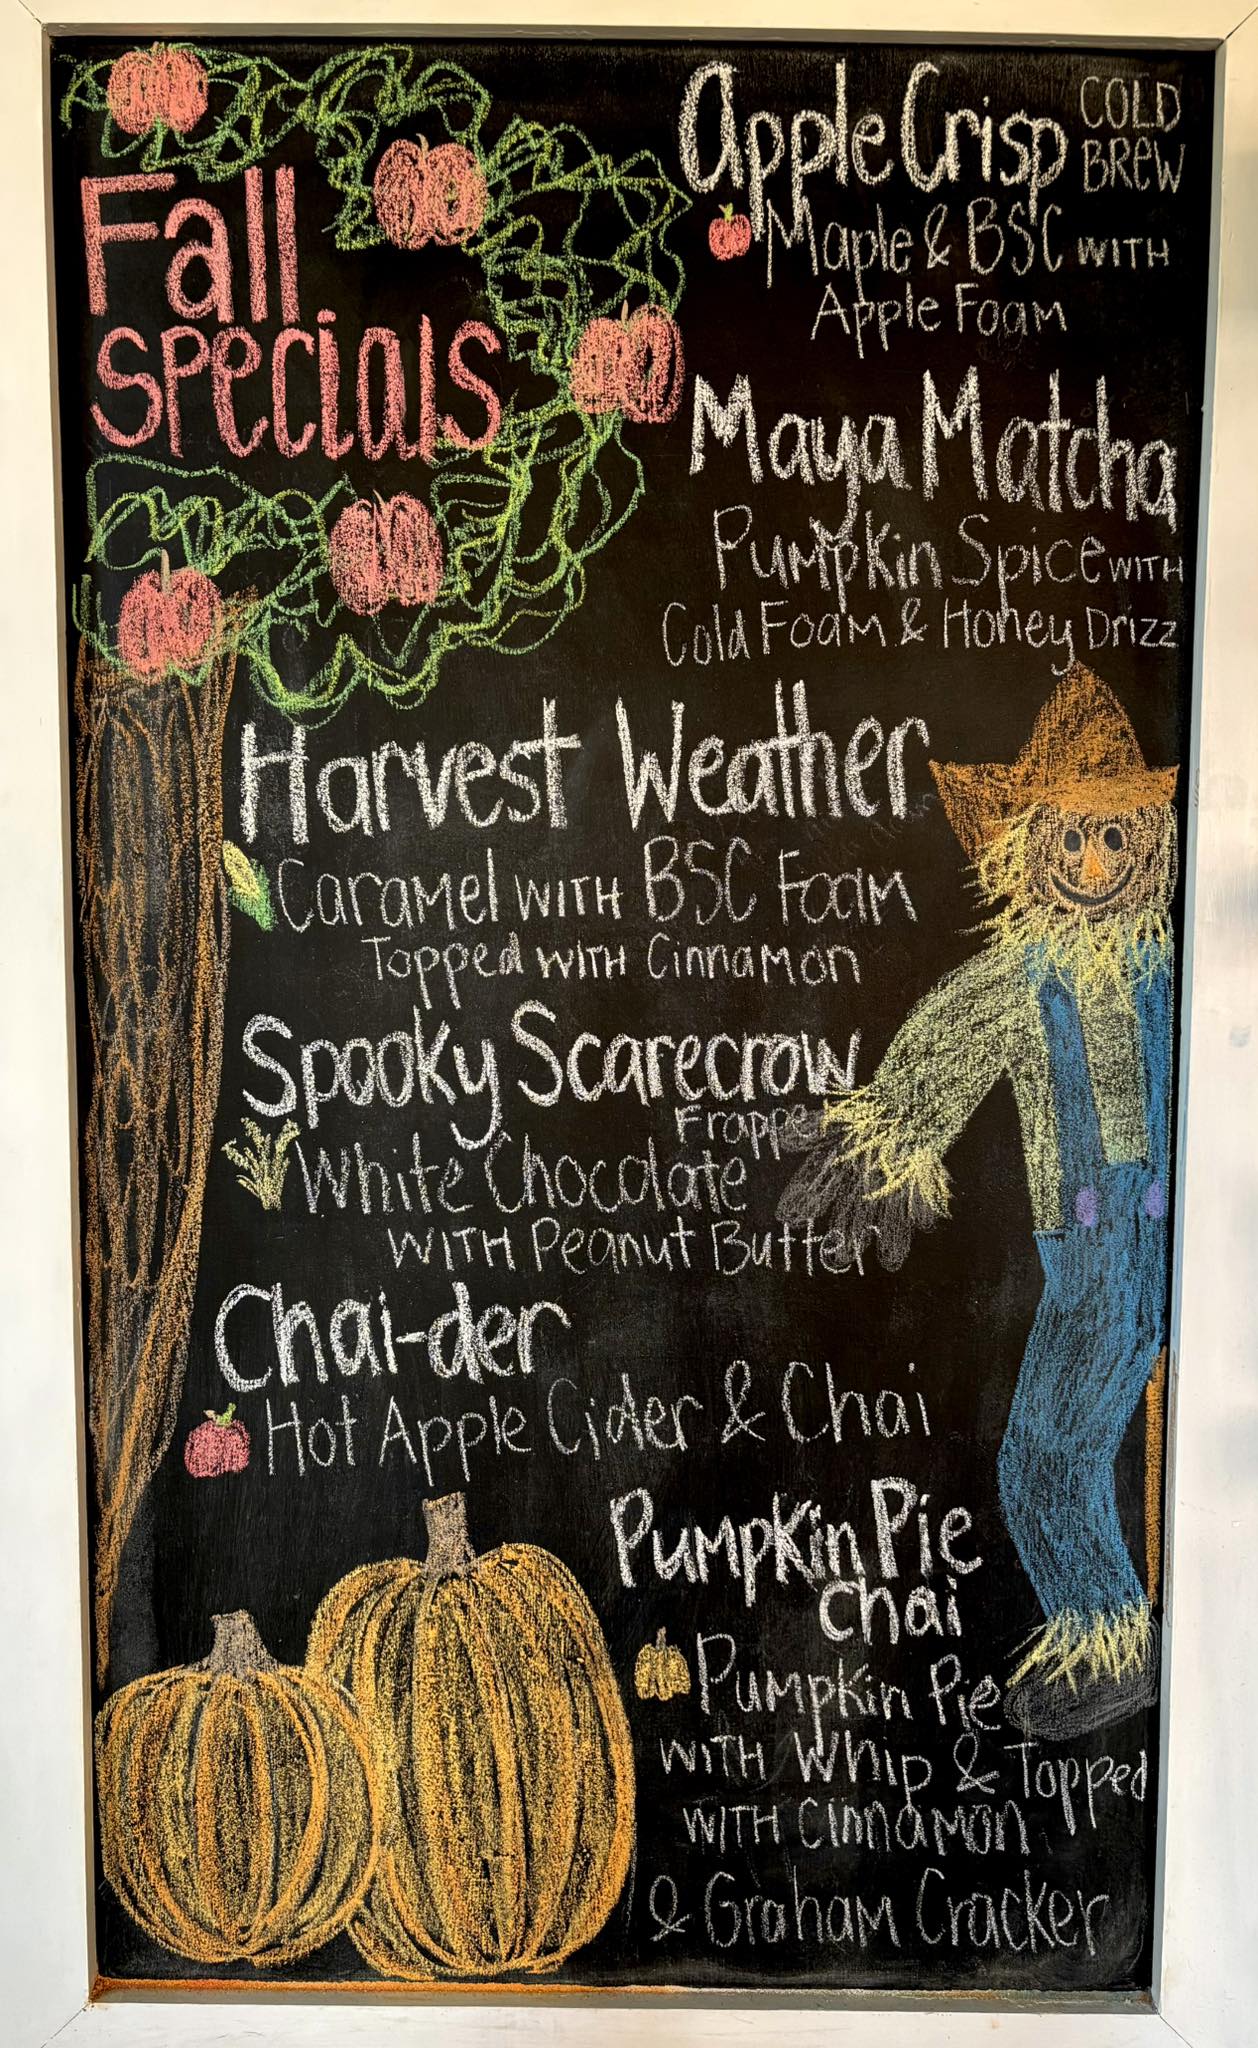 Fall
specials
Apple Crisp COLD BREW
Maple & BSC WITH
Apple Foam
Maya Matcha
Pumpkin Spice WITH
Cold Foam & Honey Drizz
Harvest Weather
Caramel WITH BSC Foam
Topped WITH Cinnamon
Spooky Scarecrow
Frappe
White Chocolate
WITH Peanut Butter
Chai-der
Hot Apple Cider & Chai
Pumpkin Pie
Chai
Pumpkin Pie
WITH Whip & Topped
WITH Cinnamon
& Graham Cracker